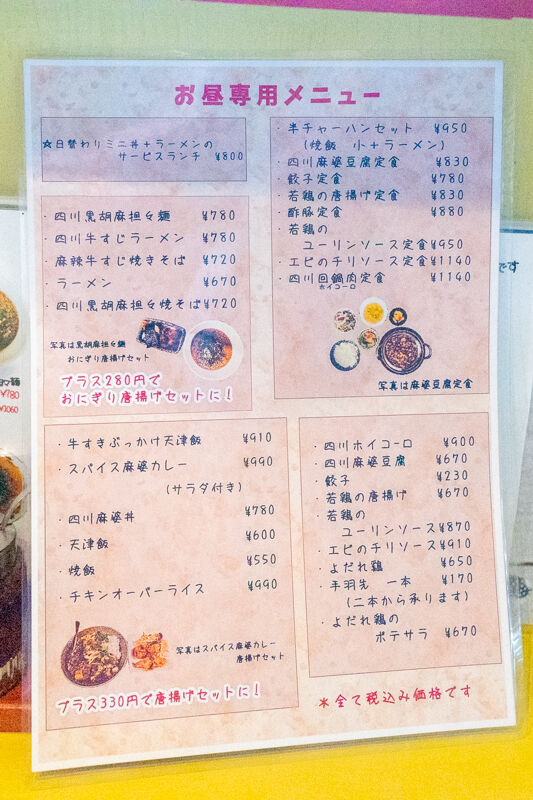 お昼専用メニュー
☆日替わりミニ丼+ラーメンの
サービスランチ ¥800
・四川黒胡麻担々麺 ¥780
・四川牛すじラーメン ¥780
・麻辣牛すじ焼きそば ¥720
・ラーメン ¥670
・四川黒胡麻担々焼そば ¥720
写真は黒胡麻担々麺
おにぎり唐揚げセット
プラス280円で
おにぎり唐揚げセットに!
・半チャーハンセット ¥950
(焼飯 小+ラーメン)
・四川麻婆豆腐定食 ¥830
・餃子定食 ¥780
・若鶏の唐揚げ定食 ¥830
・酢豚定食 ¥880
・若鶏の
ユーリンソース定食 ¥950
・エビのチリソース定食 ¥1140
・四川回鍋肉定食 ¥1140
ホイコーロ
写真は麻婆豆腐定食
・牛すきぶっかけ天津飯 ¥910
・スパイス麻婆カレー ¥990
(サラダ付き)
・四川麻婆丼 ¥780
・天津飯 ¥600
・焼飯 ¥550
・チキンオーバーライス ¥990
写真はスパイス麻婆カレー
唐揚げセット
プラス330円で唐揚げセットに!
・四川ホイコーロ ¥900
・四川麻婆豆腐 ¥670
・餃子 ¥230
・若鶏の唐揚げ ¥670
・若鶏の
ユーリンソース ¥870
・エビのチリソース ¥910
・よだれ鶏 ¥650
・手羽先 一本 ¥170
(二本から承ります)
・よだれ鶏の
ポテサラ ¥670
*全て税込み価格です
です
¥780
¥1060